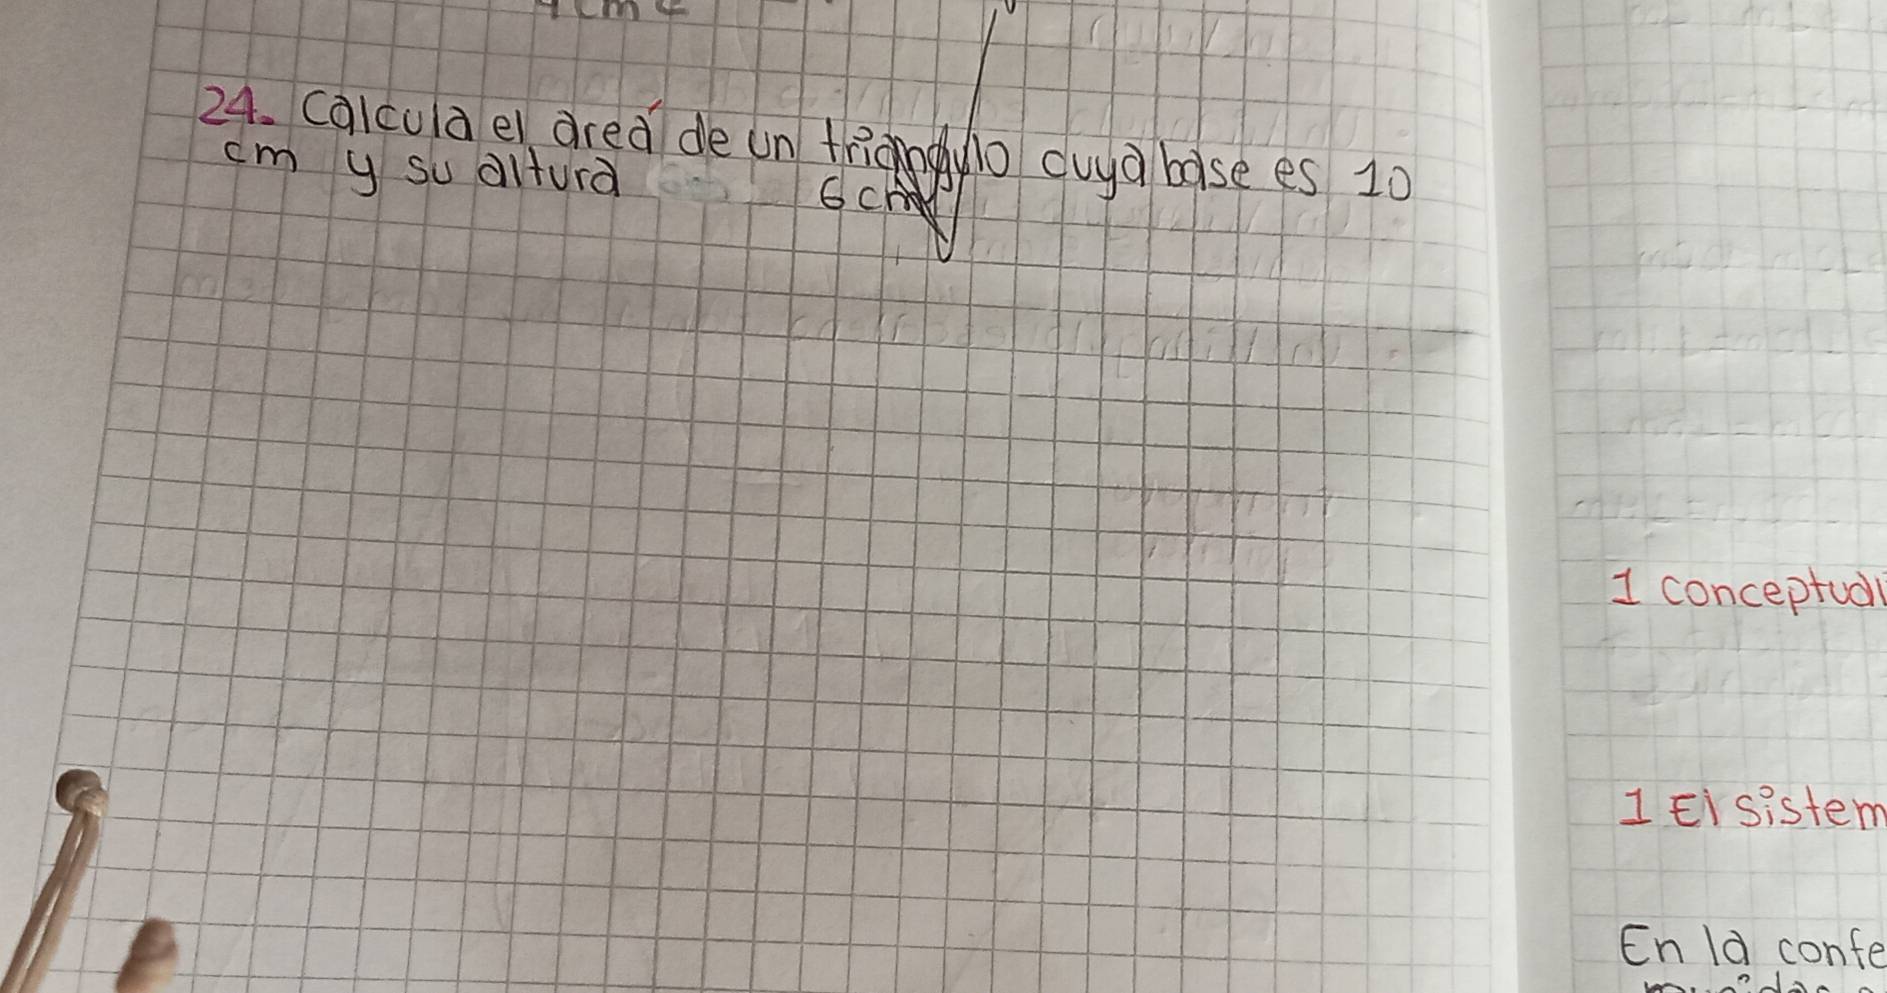 24. Calcula el área de un triangulo cuya base es 10
cm y su altura 6 cm
1 conceptuali
1 El sistem
En la confe